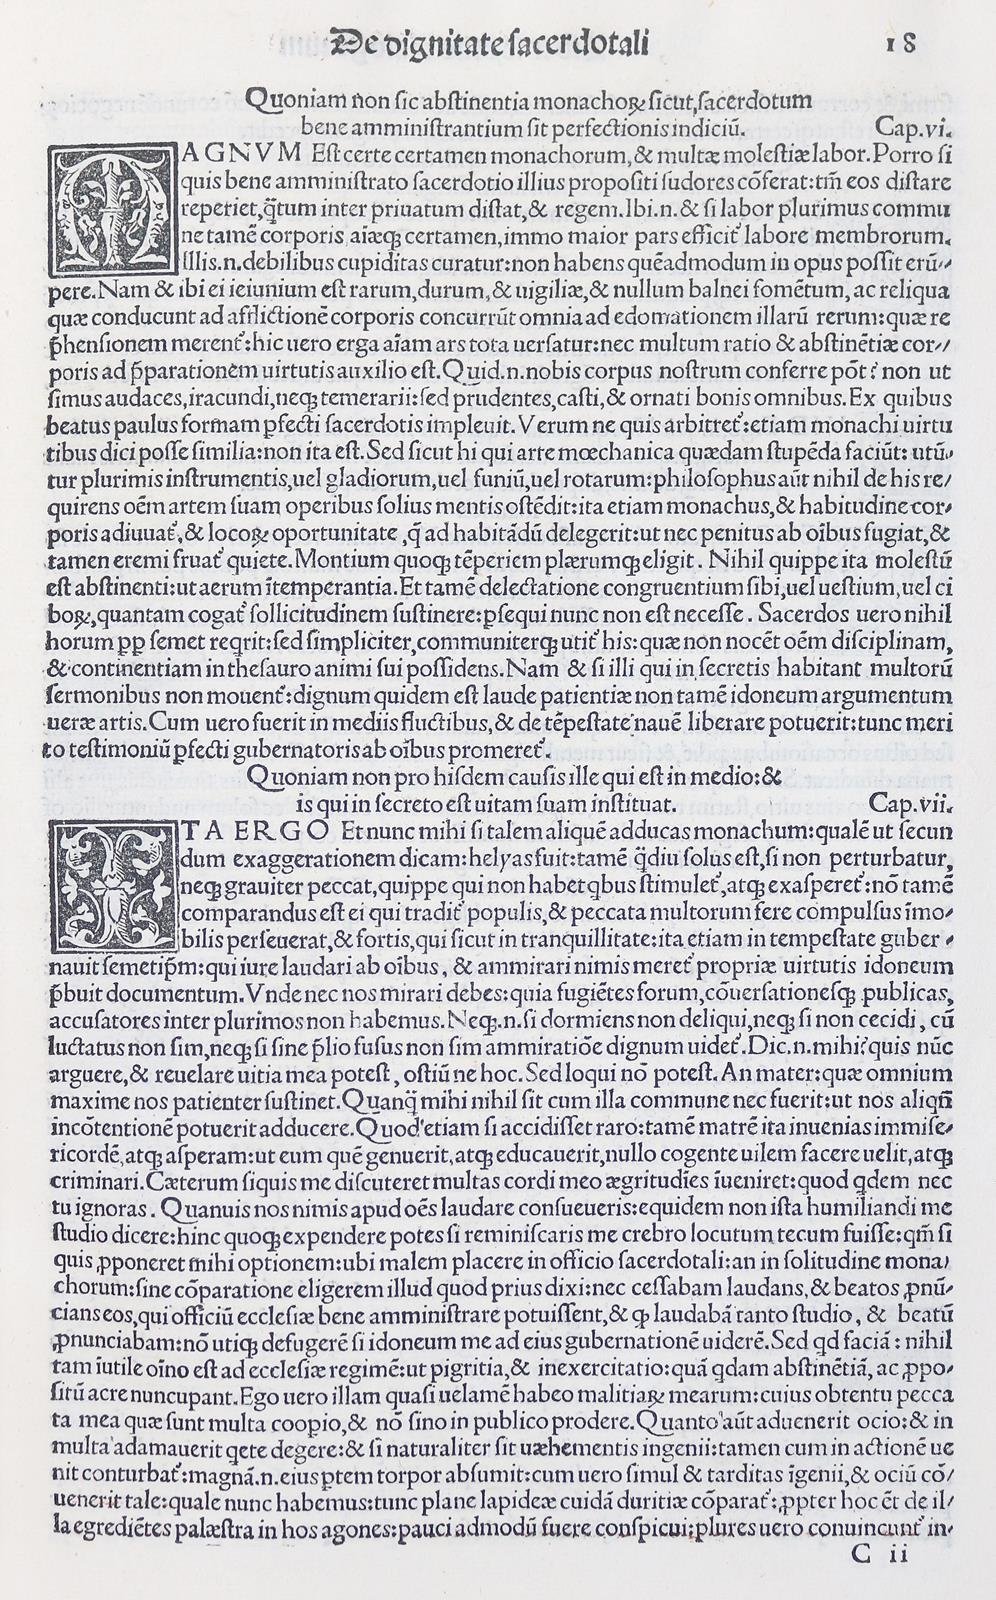 De dignitate sacerdotali 18
Quoniam non sic abstinentia monachoꝝ sicut, sacerdotum
bene amministrantium sit perfectionis indiciũ. Cap.vi.
MAGNVM Est certe certamen monachorum, & multæ molestiæ labor. Porro si
quis bene amministrato sacerdotio illius propositi sudores cõferat: tm̃ eos distare
reperiet, q̃tum inter priuatum distat, & regem. Ibi.n. & si labor plurimus commu
ne tamẽ corporis, aĩæqꝫ certamen, immo maior pars efficit᷑ labore membrorum.
Illis.n. debilibus cupiditas curatur: non habens quẽadmodum in opus possit erũ⸗
pere. Nam & ibi ei ieiunium est rarum, durum, & uigiliæ, & nullum balnei fomẽtum, ac reliqua
quæ conducunt ad afflictionẽ corporis concurrũt omnia ad edomationem illarũ rerum: quæ re
p̃hensionem merent᷑: hic uero erga aĩam ars tota uersatur: nec multum ratio & abstinẽtiæ cor⸗
poris ad p̃parationem uirtutis auxilio est. Quid.n. nobis corpus nostrum conferre põt? non ut
simus audaces, iracundi, neqꝫ temerarii: sed prudentes, casti, & ornati bonis omnibus. Ex quibus
beatus paulus formam ꝑfecti sacerdotis impleuit. Verum ne quis arbitret᷑: etiam monachi uirtu
tibus dici posse similia: non ita est. Sed sicut hi qui arte mœchanica quædam stupẽda faciũt: utũ⸗
tur plurimis instrumentis, uel gladiorum, uel funiũ, uel rotarum: philosophus aũt nihil de his re/
quirens oẽm artem suam operibus solius mentis ostẽdit: ita etiam monachus, & habitudine cor⸗
poris adiuuat᷑, & locoꝝ oportunitate, q̃ ad habitãdũ delegerit: ut nec penitus ab oĩbus fugiat, &
tamen eremi fruat᷑ quiete. Montium quoqꝫ tẽperiem plærumqꝫ eligit. Nihil quippe ita molestũ
est abstinenti: ut aerum ĩtemperantia. Et tamẽ delectatione congruentium sibi, uel uestium, uel ci
boꝝ, quantam cogat᷑ sollicitudinem sustinere: ꝑsequi nunc non est necesse. Sacerdos uero nihil
horum ꝓp semet reqrit: sed simpliciter, communiterqꝫ utit᷑ his: quæ non nocẽt oẽm disciplinam,
& continentiam in thesauro animi sui possidens. Nam & si illi qui in secretis habitant multorũ
sermonibus non mouent᷑: dignum quidem est laude patientiæ non tamẽ idoneum argumentum
ueræ artis. Cum uero fuerit in mediis fluctibus, & de tẽpestate nauẽ liberare potuerit: tunc meri
to testimoniũ ꝑfecti gubernatoris ab oĩbus promeret᷑.
Quoniam non pro hisdem causis ille qui est in medio: &
is qui in secreto est uitam suam instituat. Cap.vii.
ITA ERGO Et nunc mihi si talem aliquẽ adducas monachum: qualẽ ut secun
dum exaggerationem dicam: helyas fuit: tamẽ q̃diu solus est, si non perturbatur,
neqꝫ grauiter peccat, quippe qui non habet qbus stimulet᷑, atqꝫ exasperet᷑: nõ tamẽ
comparandus est ei qui tradit᷑ populis, & peccata multorum ferre compulsus ĩmo⸗
bilis perseuerat, & fortis, qui sicut in tranquillitate: ita etiam in tempestate guber⸗
nauit semetip̃m: qui iure laudari ab oĩbus, & ammirari nimis meret᷑ propriæ uirtutis idoneum
p̃buit documentum. Vnde nec nos mirari debes: quia fugiẽtes forum, cõuersationesqꝫ publicas,
accusatores inter plurimos non habemus. Neqꝫ.n. si dormiens non deliqui, neqꝫ si non cecidi, cũ
luctatus non sim, neqꝫ si sine p̃lio fusus non sim ammiratiõe dignum uidet᷑. Dic.n. mihi? quis nũc
arguere, & reuelare uitia mea potest, ostiũ ne hoc. Sed loqui nõ potest. An mater: quæ omnium
maxime nos patienter sustinet. Quanq̃ mihi nihil sit cum illa commune nec fuerit: ut nos aliqñ
incõtentionẽ potuerit adducere. Quod etiam si accidisset raro: tamẽ matrẽ ita inuenias immise⸗
ricordẽ, atqꝫ asperam: ut eum quẽ genuerit, atqꝫ educauerit, nullo cogente uilem facere uelit, atqꝫ
criminari. Cæterum siquis me discuteret multas cordi meo ægritudies ĩueniret: quod qdem nec
tu ignoras. Quanuis nos nimis apud oẽs laudare consueueris: equidem non ista humiliandi me
studio dicere: hinc quoqꝫ expendere potes si reminiscaris me crebro locutum tecum fuisse: qm̃ si
quis ꝓponeret mihi optionem: ubi malem placere in officio sacerdotali: an in solitudine mona/
chorum: sine cõparatione eligerem illud quod prius dixi: nec cessabam laudans, & beatos ꝓnũ⸗
cians eos, qui officiũ ecclesiæ bene amministrare potuissent, & qꝫ laudabã tanto studio, & beatũ
ꝓnunciabam: nõ utiqꝫ defugerẽ si idoneum me ad eius gubernationẽ uiderẽ. Sed qd faciã: nihil
tam ĩutile oĩno est ad ecclesiæ regimẽ: ut pigritia, & inexercitatio: quã qdam abstinẽtiã, ac ꝓpo⸗
sitũ acre nuncupant. Ego uero illam quasi uelamẽ habeo malitiaꝝ mearum: cuius obtentu pecca
ta mea quæ sunt multa coopio, & nõ sino in publico prodere. Quanto aũt aduenerit ocio: & in
multa adamauerit qete degere: & si naturaliter sit uæhementis ingenii: tamen cum in actionẽ ue
nit conturbat᷑: magnã.n. eius ptem torpor absumit: cum uero simul & tarditas ĩgenii, & ociũ cõ/
uenerit tale: quale nunc habemus: tunc plane lapideæ cuidã duritiæ cõparat᷑: ꝓpter hoc ẽt de il/
la egrediẽtes palæstra in hos agones: pauci admodũ fuere conspicui: plures uero conuincunt᷑ in⸗
C ii